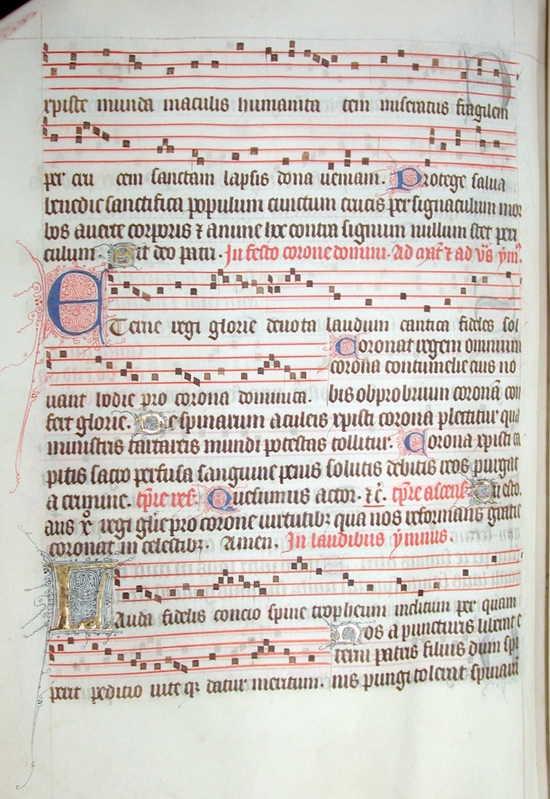 xpiste munda maculis humanita tem miseratus fragilem
per cru cem sanctam lapsis dona ueniam. Protege salua
benedic sanctifica populum cunctum crucis per signaculum mor
bos auerte corporis ⁊ anime hoc contra signum nullum stet peri
culum. Sit deo patri. In festo corone domini. Ad
Eterne regi glorie deuota laudum cantica fideles sol
Coronat regem omnium
corona contumelie cuius no
uant hodie pro corona dominica. bis obprobrium coronam con
fert glorie. De spinarum aculeis xpisti corona plectitur qua
ministris tartareis mundi potestas tollitur. Corona xpisti ca
pitis sacro perfusa sanguine penis solutis debitis reos purgat
a crimine. Quesumus actor.
aus xpe regi glie pro corone uirtutibz qua nos reformans gratie
coronat in celestibz. Amen. In laudibus ymnus.
Lauda fidelis concio spine tropheum inclitum per quam
Nos a puncturis liberat e
terni patris filius dum spi
perit perdicio uite qz datur meritum. nis pungi tolerat spinarum